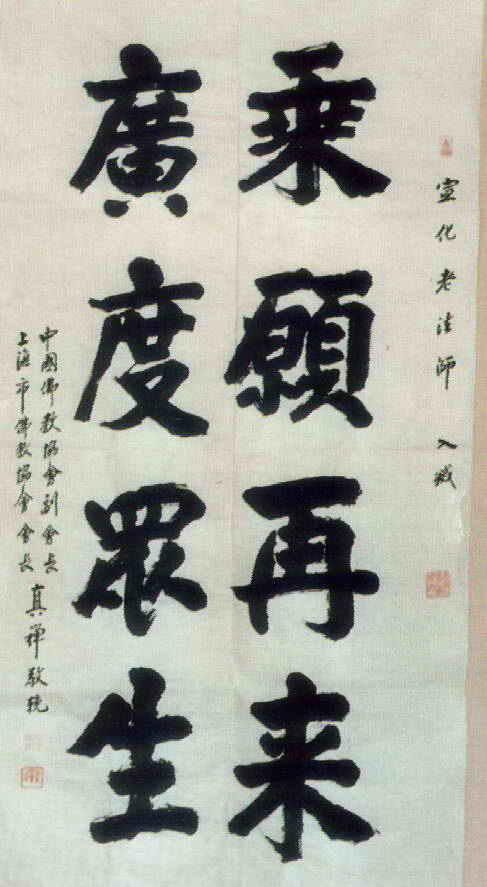 宣化老法師 入滅
乘願再来
廣度眾生
中國佛教協會副會長
上海市佛教協會會長
真禪敬輓